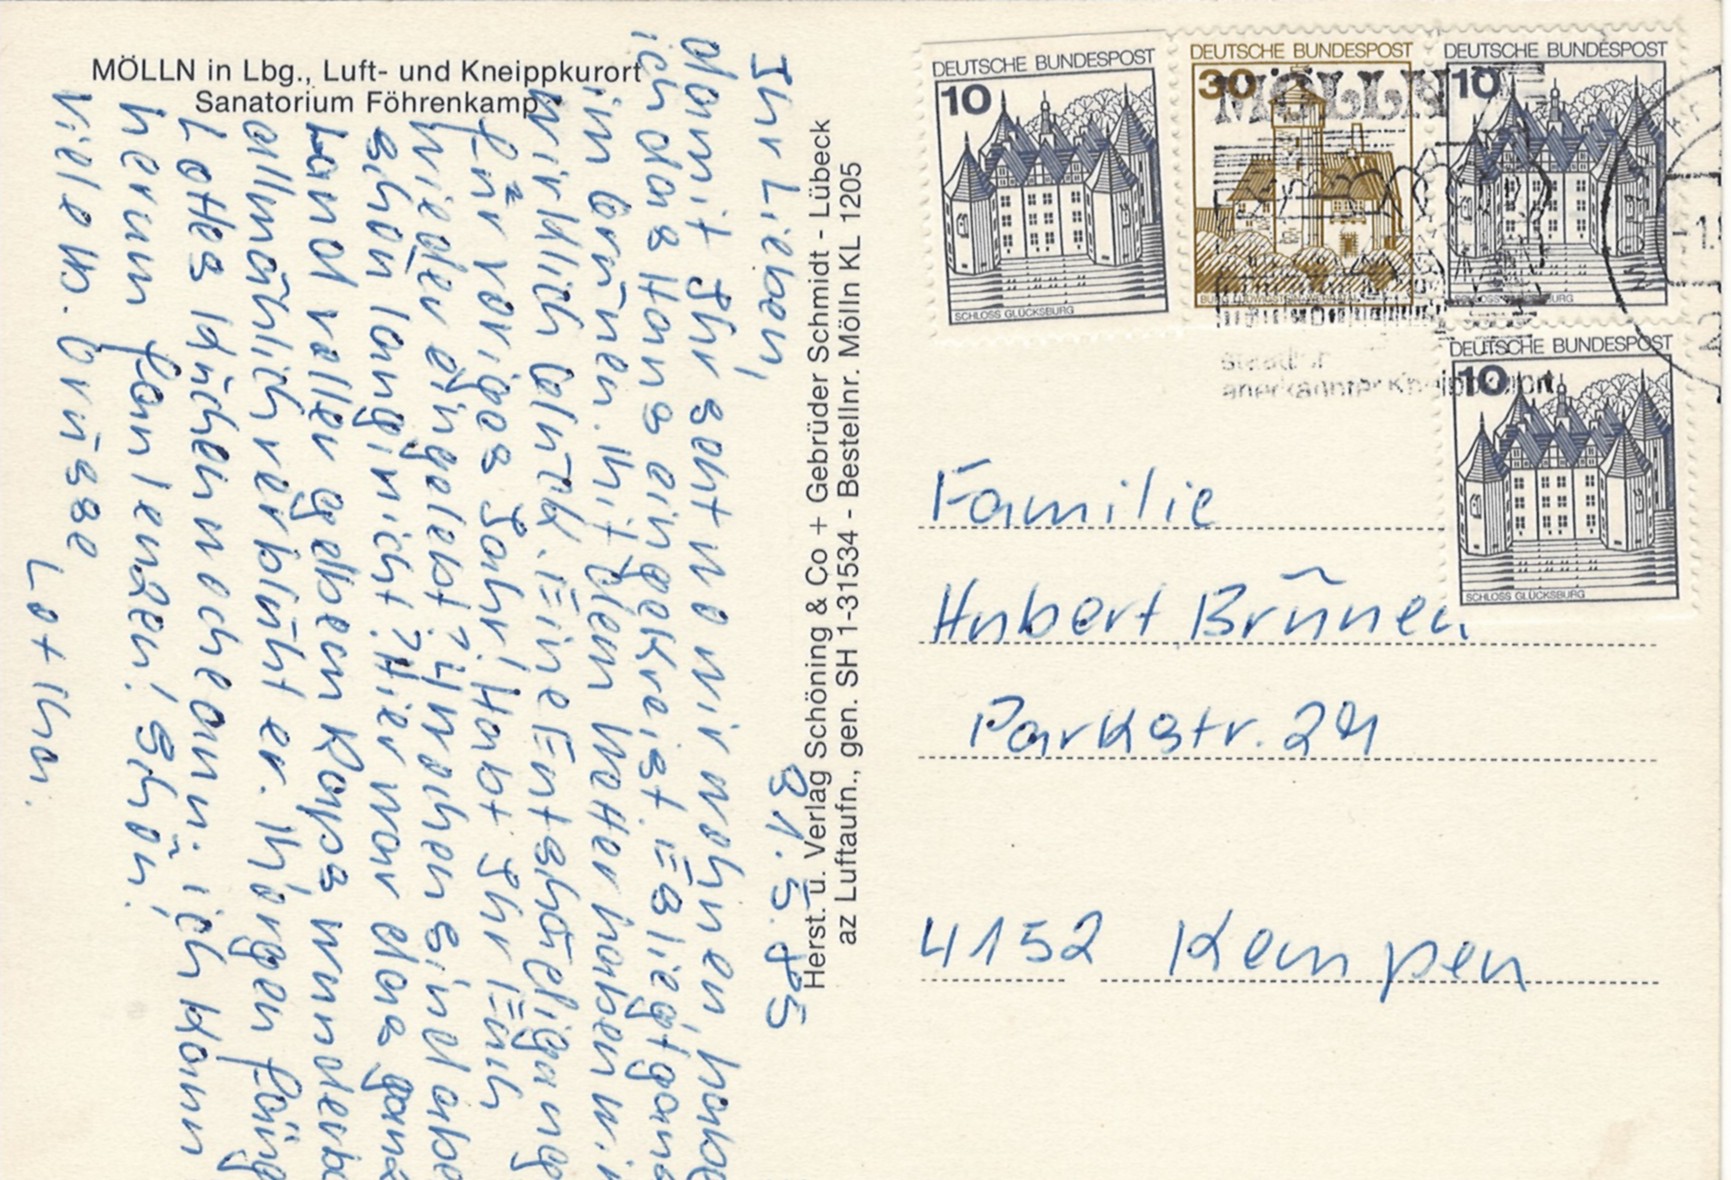 MÖLLN in Lbg., Luft- und Kneippkurort
Sanatorium Föhrenkamp
31.5.85
Ihr Lieben,
damit Ihr seht wo wir wohnen, habe
ich das Haus eingekreist. Es liegt ganz
im Grünen. Mit dem Wetter haben wir
wirklich Glück. Eine Entschädigung
für voriges Jahr! Habt Ihr Euch
wieder eingelebt? 4 Wochen sind aber
schon lang, nicht? Hier war das ganze
Land voller gelbem Raps, wunderb
allmählich verblüht er. Morgen fäng
Lottes Küchenwoche an: ich kann
herum faulenzen! Schön!
Viele lb. Grüsse
Lothar.
Herst. u. Verlag Schöning & Co + Gebrüder Schmidt - Lübeck
az Luftaufn., gen. SH 1-31534 - Bestellnr. Mölln KL 1205
DEUTSCHE BUNDESPOST
10
SCHLOSS GLÜCKSBURG
DEUTSCHE BUNDESPOST
30
DEUTSCHE BUNDESPOST
10
SCHLOSS GLÜCKSBURG
MÖLLN
staatlich
anerkannter Kneippkurort
DEUTSCHE BUNDESPOST
10
SCHLOSS GLÜCKSBURG
Familie
Hubert Brünen
Parkstr. 24
4152 Kempen